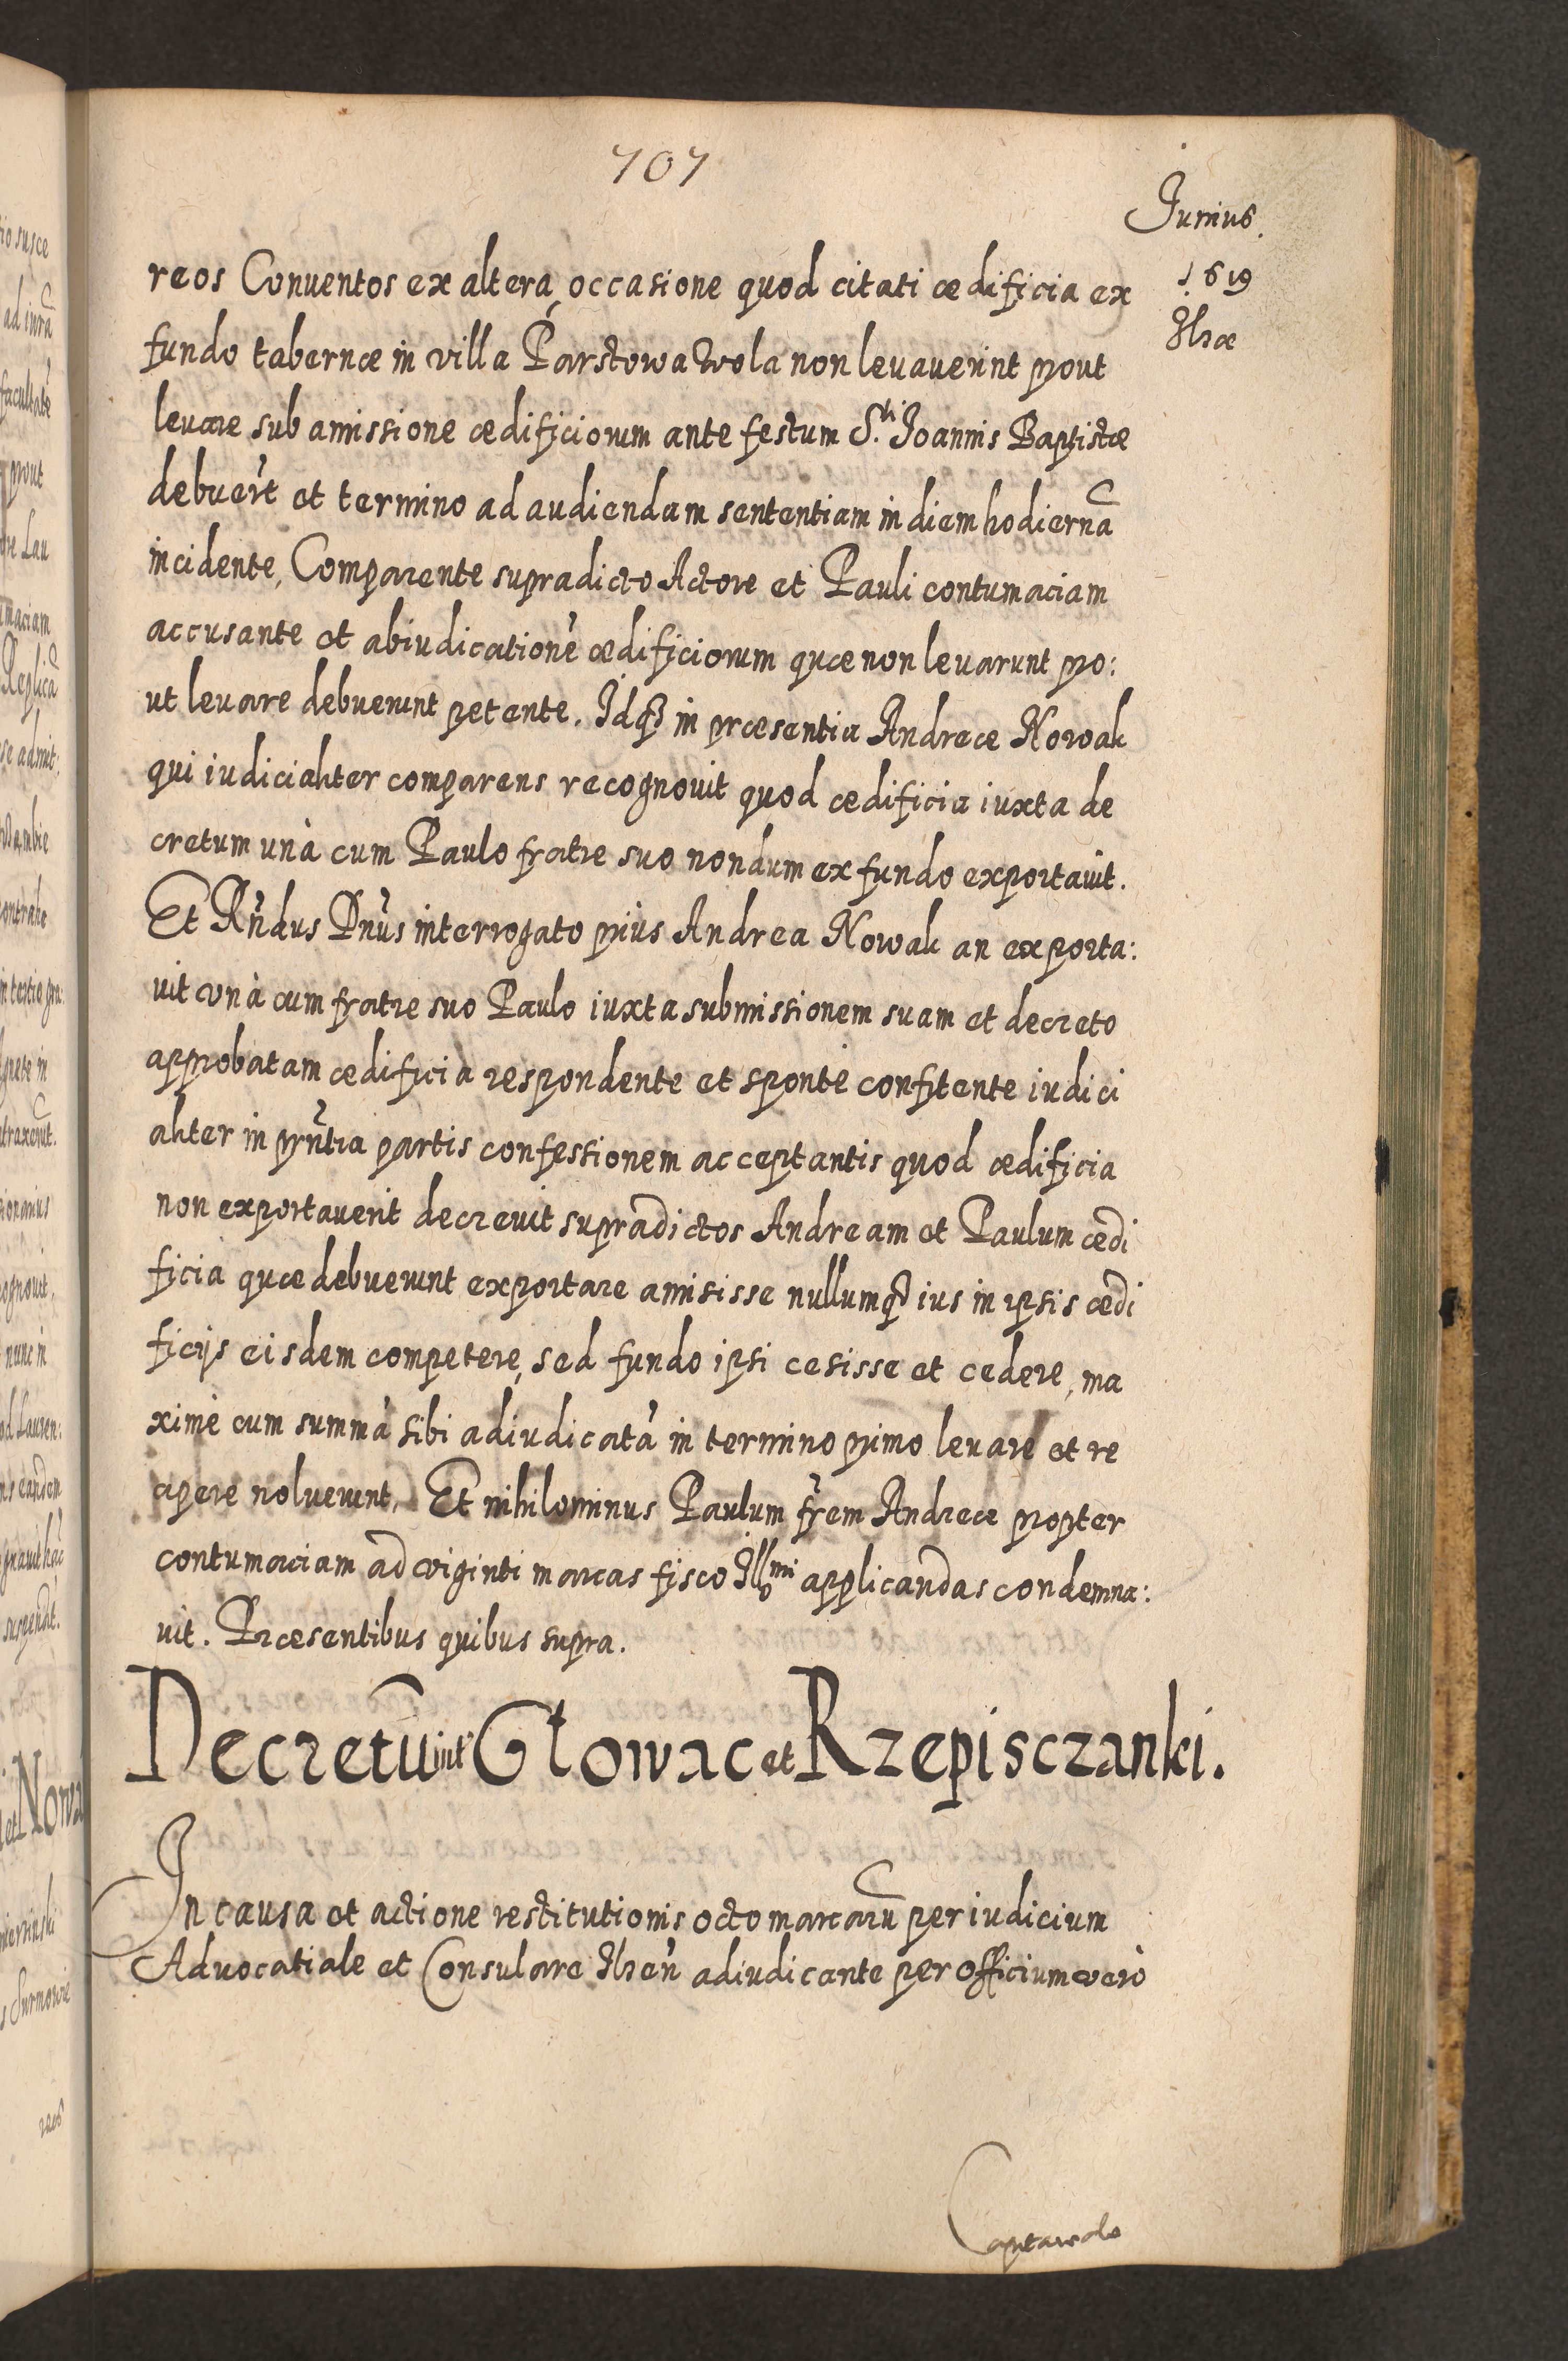 707
Junius.
1619
Ilzæ
reos Conuentos ex altera, occasione quod citati ædificia ex
fundo tabernæ in villa Parszowa Wola non leuauerint prout
leuare sub amissione ædificiorum ante festum S.ti Joannis Baptistæ
debuer̃t et termino ad audiendam sententiam in diem hodiernã
incidente, Comparente supradicto Actore et Pauli contumaciam
accusante et abiudicationẽ ædificiorum quæ non leuarunt pro:
ut leuare debuerunt petente. Idq3 in præsentia Andreæ Nowak
qui iudicialiter comparens recognouit quod ædificia iuxta de
cretum unà cum Paulo fratre suo nondum ex fundo exportauit.
Et Rñdus Dnũs interrogato prius Andrea Nowak an exporta:
uit vnà cum fratre suo Paulo iuxta submissionem suam et decreto
approbatam ædificia respondente et sponte confitente iudici
aliter in prñtia partis confessionem acceptantis quod ædificia
non exportauerit decreuit supradictos Andream et Paulum ædi
ficia quæ debuerunt exportare amisisse nullumq3 ius in ipsis ædi
ficijs eisdem competere, sed fundo ipsi cesisse et cedere, ma
ximè cum summà sibi adiudicatà in termino primo leuare et re
cipere noluerunt. Et nihilominus Paulum fr̃em Andreæ propter
contumaciam ad viginti marcas fisco Illmi applicandas condemna:
uit. Præsentibus quibus supra.
Decretũ int' Głowac et Rzepisczanki.
In causa et actione restitutionis octo marcarũ per iudicium
Aduocatiale et Consulare Ilzeñ adiudicante per officium verò